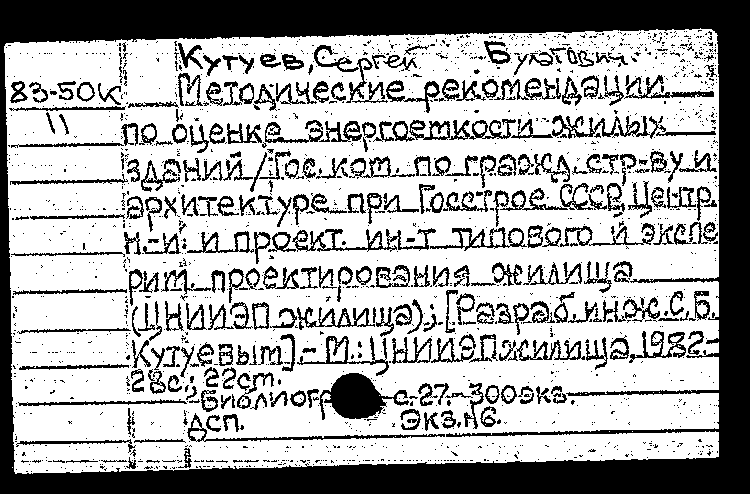 Кутуев, Сергей Булатович.
83-50к Методические рекомендации
11 по оценке энергоемкости жилых
зданий / Гос. ком. по гражд. стр-ву и
архитектуре при Госстрое СССР, Центр.
н.-и. и проект. ин-т типового и экспе
рим. проектирования жилища
(ЦНИИЭП жилища); [Разраб. инж. С.Б.
Кутуевым].- М.: ЦНИИЭП жилища, 1982.-
28с.; 22см.
Библиогр с.27.- 300экз.
Дсп. Экз.№6.